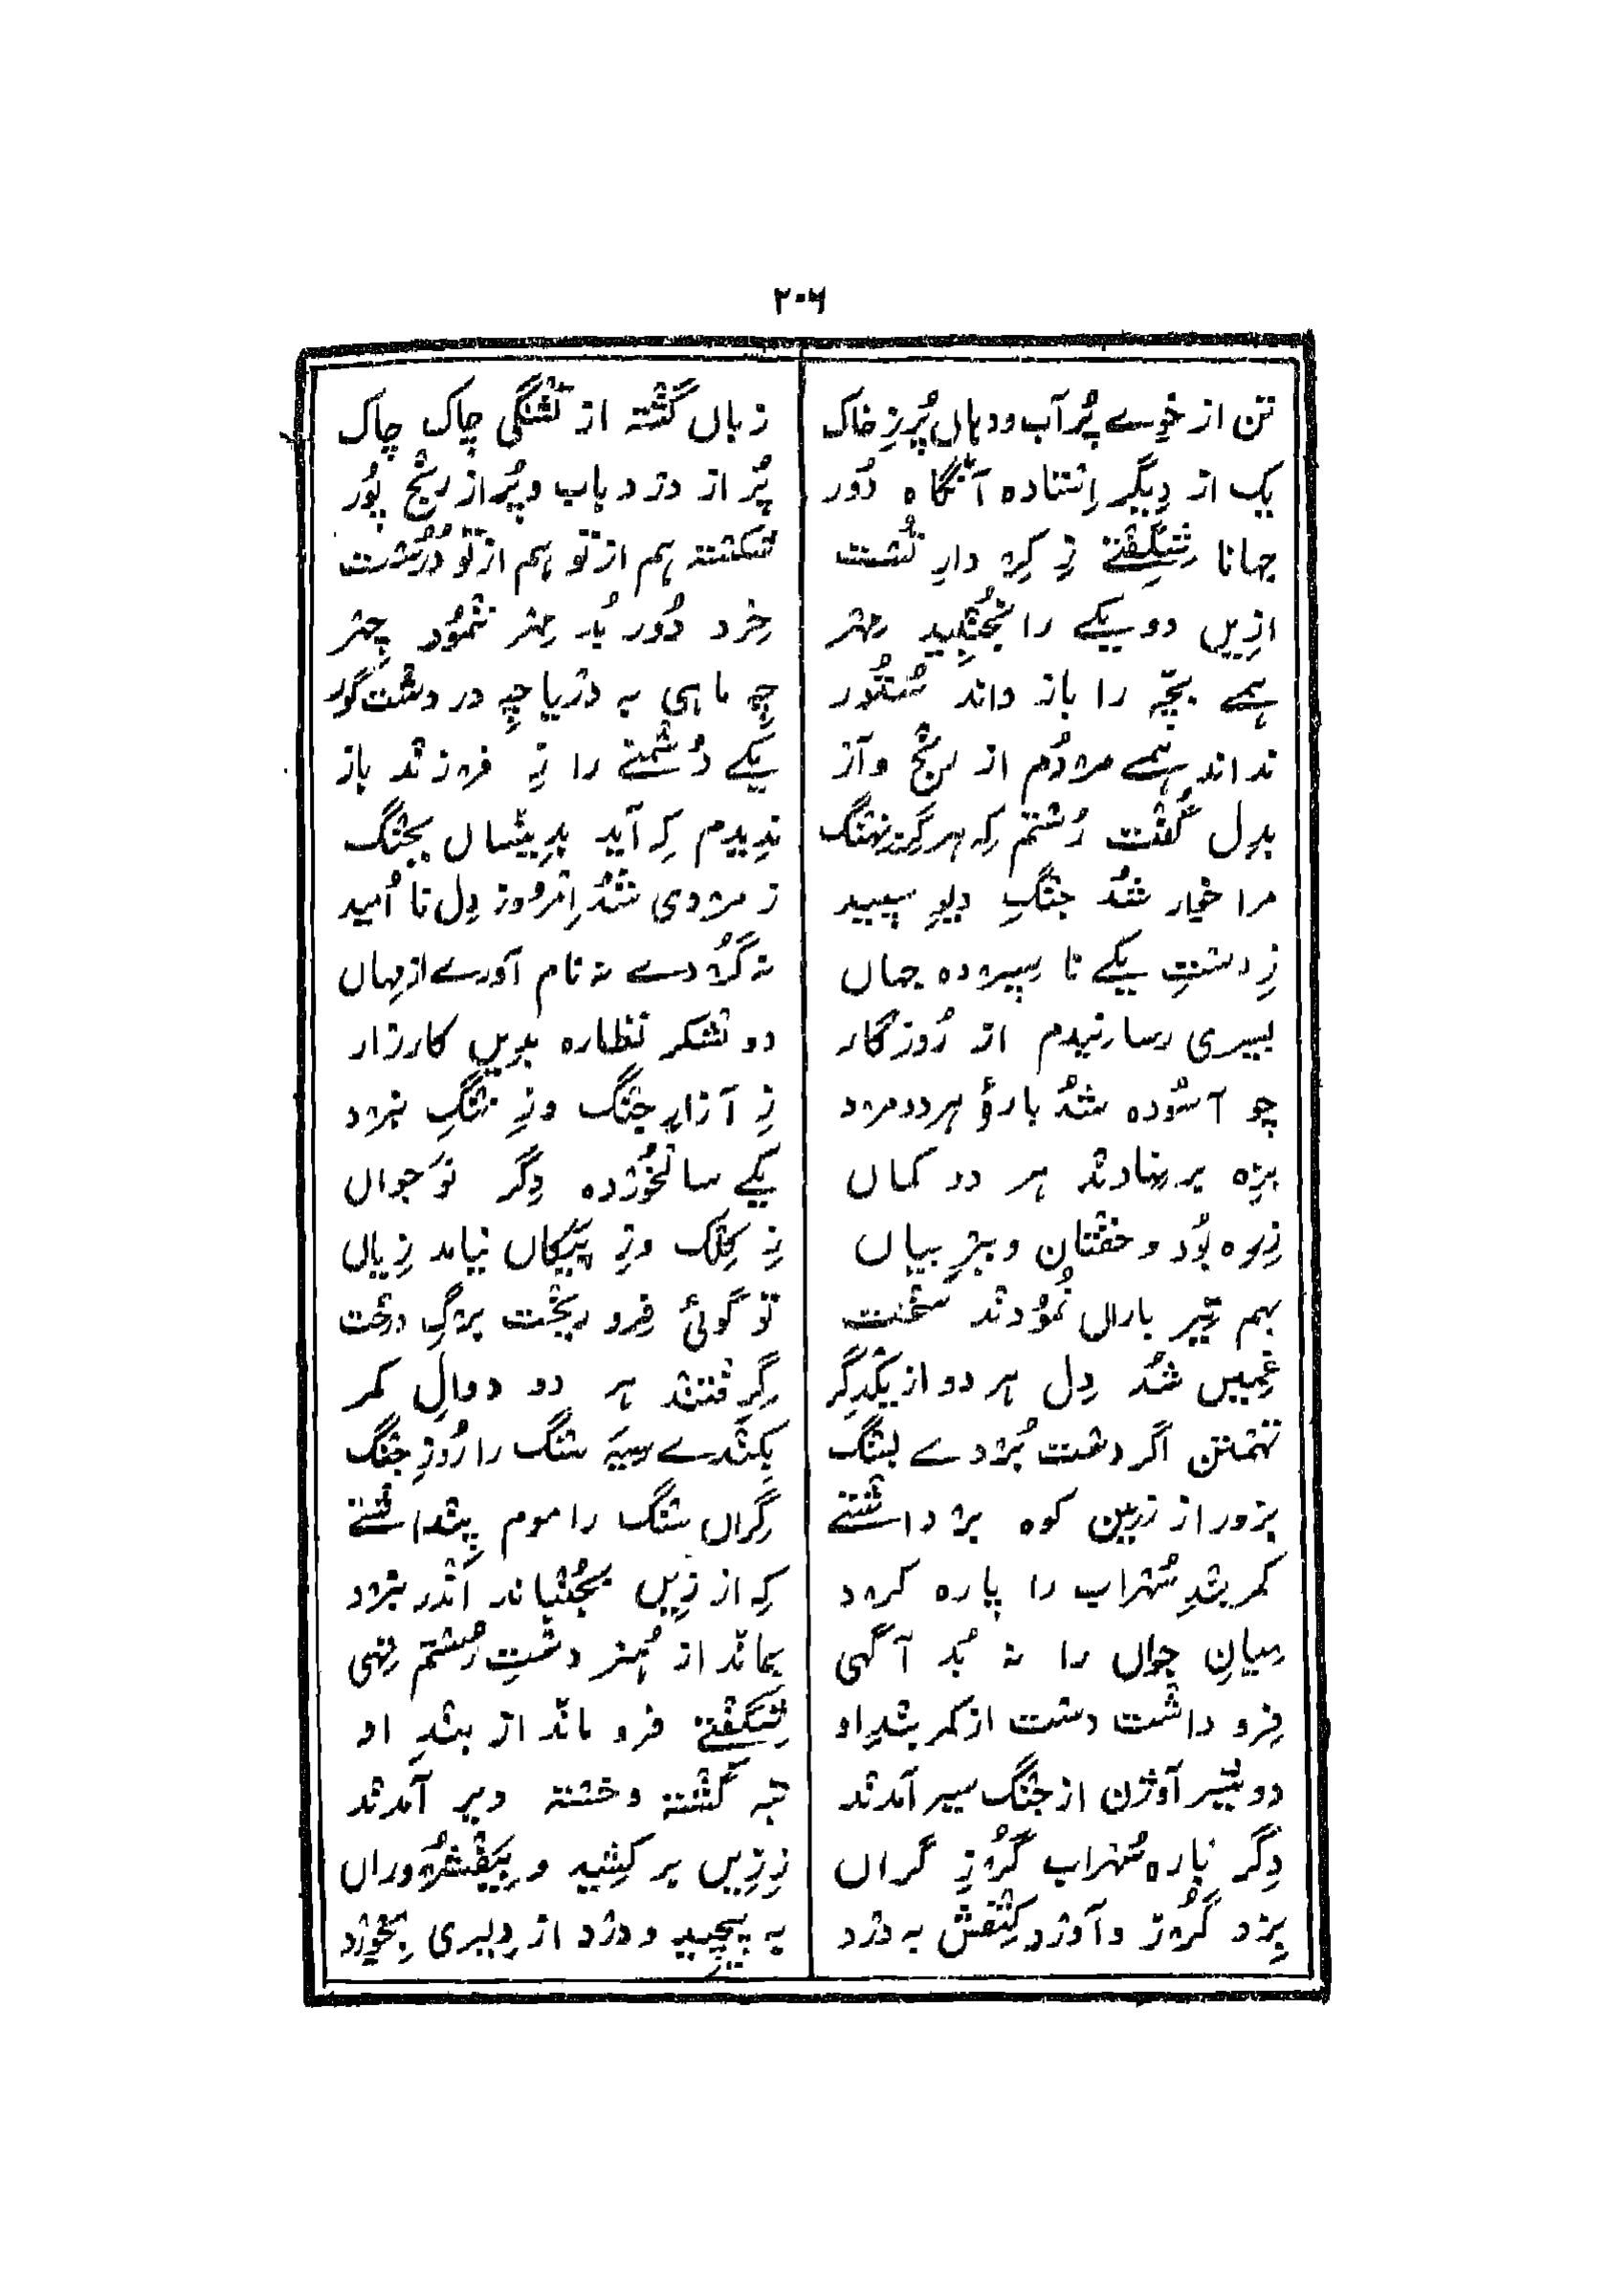 ۲۰۶
تن از خوے پُر آب و دہاں پُر زِ خاک زباں گشتہ از تشنگی چاک چاک
یک از دِیگر اِستادہ آنگاہ دُور پُر از درد باب و پُر از رنج پُور
جہانا شِگِفتے زِ کِردارِ تُست شکستہ ہم از تو ہم از تو دُرُست
ازِیں دو یکے را نجُنبِید مِہر خِرد دُور بُد مِہر ننمُود چِہر
ہمے بچّہ را باز داند سُتُور چِہ ماہی بہ دریا چِہ در دشت گور
نداند ہمے مردُم از رنج و آز یکے دُشمنے را زِ فرزند باز
بدِل گُفت رُستم کِہ ہرگِز نہنگ ندِیدم کِہ آید بدِینساں بجنگ
مرا خوار شُد جنگِ دیوِ سپید ز مردی شُد اِمروز دِل نا اُمید
زِ دستِ یکے نا سِپردہ جہاں نہ گُردے نہ نام آورے از مہاں
بسیری رسانیدم از رُوزگار دو لشکر نظارہ بدیں کارزار
چو آسُودہ شُد بارۂ ہر دو مرد زِ آزارِ جنگ و زِ ننگِ نبرد
بزِہ بر نِہادند ہر دو کماں یکے سالخُوردہ دِگر نَوجواں
زِرہ بُود و خفتان و ببرِ بیاں زِ کِلک و زِ پَیکاں نیامد زِیاں
بہم تِیر باراں نُمُودند سخت تو گوئی فِرو ریخت برگِ درخت
غمِیں شُد دِل ہر دو از یکدِگر گِرِفتند ہر دو دوالِ کمر
تہمتن اگر دست بُردے بسنگ بکندے سِیَہ سنگ را رُوزِ جنگ
بزور از زمِین کوہ بر داشتے گِراں سنگ را موم پِنداشتے
کمر بندِ سُہراب را چارہ کرد کِہ از زِیں بجُنباند اَندر نبرد
میانِ جواں را نہ بُد آگہی بماند از ہُنر دستِ رُستم تِہی
فِرو داشت دست از کمر بندِ او شِگِفتے فرو ماند از بندِ او
دو شیر آوژن از جنگ سیر آمدند تبہ گشتہ و خستہ دیر آمدند
دِگر بارہ سُہراب گُرزِ گراں زِ زِیں بر کِشید و بِیَفشُرد راں
بِزد گُرز و آورد کِتفش بہ درد بہ پیچید و درد از دِلیری بِخورد